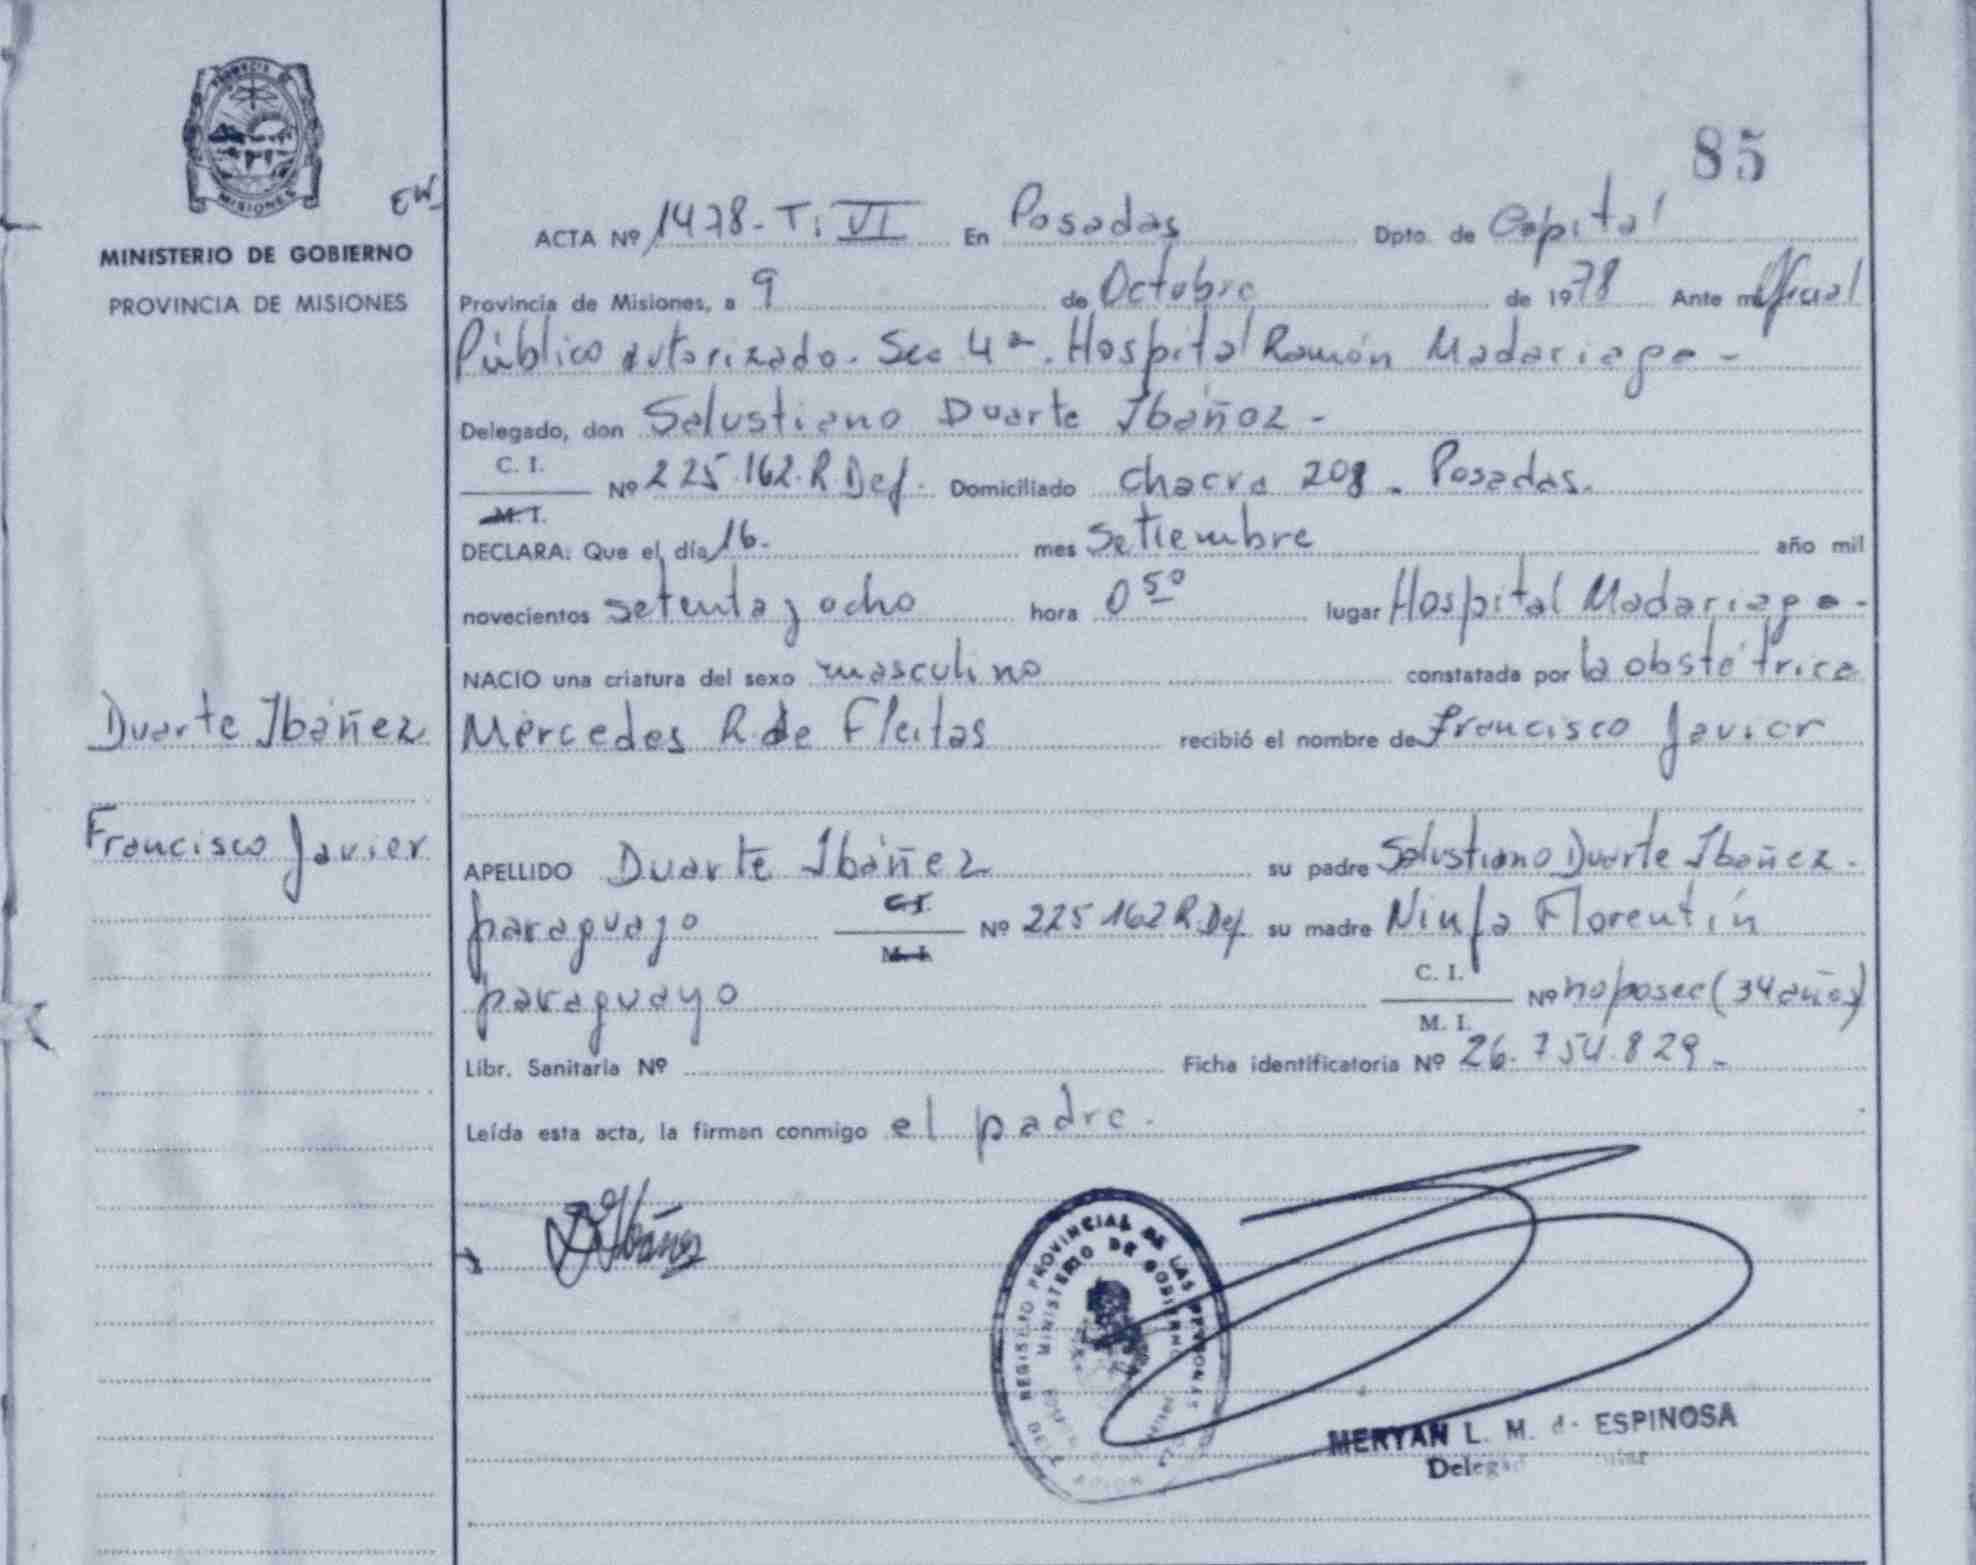 PROVINCIA DE
MISIONES
MINISTERIO DE GOBIERNO
PROVINCIA DE MISIONES
EW
85
ACTA Nº 1478 - T: VI En Posadas Dpto. de Capital
Provincia de Misiones, a 9 de Octubre de 1978 Ante mi Oficial
Público autorizado. Sec 4ª. Hospital Ramón Madariaga -
Delegado, don Salustiano Duarte Ibáñez -
C. I.
M. I. Nº 225.162. R Def. Domiciliado Chacra 208 - Posadas.
DECLARA: Que el día 16. mes Setiembre año mil
novecientos setenta y ocho hora 0 50 lugar Hospital Madariaga -
NACIO una criatura del sexo masculino constatada por la obstétrica
Duarte Ibáñez
Mercedes R. de Fleitas recibió el nombre de Francisco Javier
Francisco Javier
APELLIDO Duarte Ibáñez su padre Salustiano Duarte Ibáñez -
paraguayo C.I. M. I. Nº 225 162 R. Def su madre Ninfa Florentín
paraguayo C. I. M. I. Nº no posee (34 años)
Libr. Sanitaria Nº Ficha identificatoria Nº 26.754.829 -
Leída esta acta, la firman conmigo el padre -
D Ibáñez
REGISTRO PROVINCIAL DE LAS PERSONAS
MINISTERIO DE GOBIERNO
MERYAN L. M. d- ESPINOSA